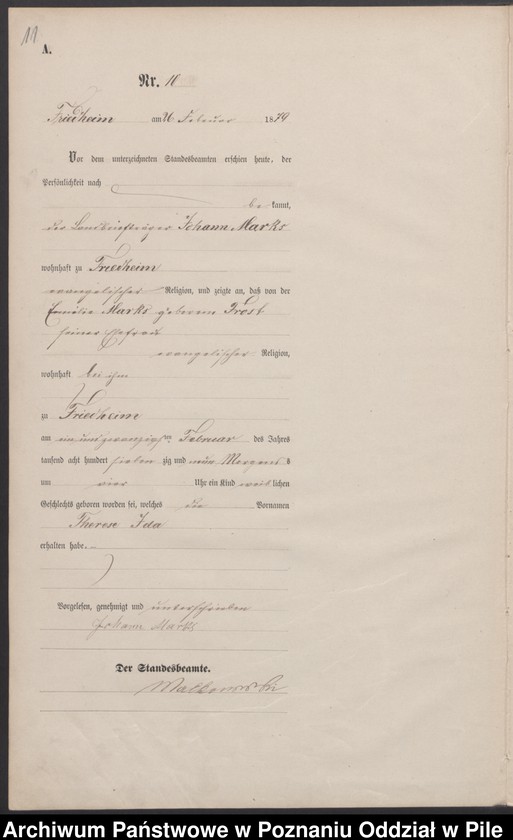 11
A.
Nr. 10
Friedheim am 26 Februar 1879
Vor dem unterzeichneten Standesbeamten erschien heute, der
Persönlichkeit nach
be kannt,
der Landbriefträger Johann Marks
wohnhaft zu Friedheim
evangelischer Religion, und zeigte an, daß von der
Emilie Marks geborenen Prost
seiner Ehefrau
evangelischer Religion,
wohnhaft bei ihm
zu Friedheim
am ein und zwanzigsten Februar des Jahres
tausend acht hundert sieben zig und neun Morgens
um vier Uhr ein Kind weib lichen
Geschlechts geboren worden sei, welches die Vornamen
Therese Ida
erhalten habe.
Vorgelesen, genehmigt und unterschrieben
Johann Marks
Der Standesbeamte.
Archiwum Państwowe w Poznaniu Oddział w Pile